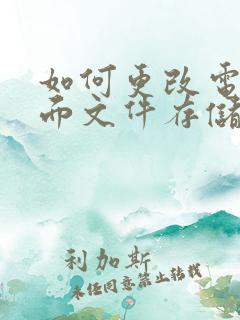 如何更改電
而文件存儲
利加斯
未经同意禁止转载